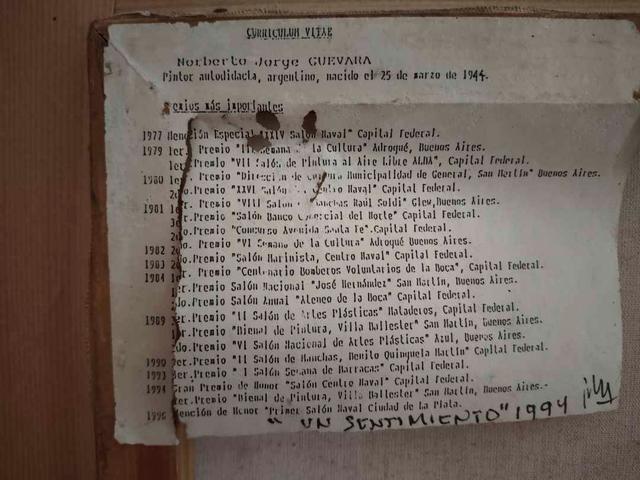 CURRICULUM VITAE
Norberto Jorge GUEVARA
Pintor autodidacta, argentino, nacido el 25 de marzo de 1944.
Premios más importantes
1977 Mención Especial "XXIV Salón Naval" Capital Federal.
1979 1er. Premio "III Semana la Cultura" Adrogué, Buenos Aires.
1er. Premio "VII Salón de Pintura al Aire Libre ALBA", Capital Federal.
1980 1er. Premio "Dirección de Cultura Municipalidad de General, San Martín" Buenos Aires.
2do. Premio "XXVI Salón Centro Naval" Capital Federal.
1981 1er. Premio "VIII Salón Manchas Raúl Soldi" Glew, Buenos Aires.
Premio "Salón Banco Comercial del Norte" Capital Federal.
Premio "Concurso Avenida Santa Fe". Capital Federal.
2do. Premio "VI Semana de la Cultura" Adrogué Buenos Aires.
1982 2do. Premio "Salón Marinista, Centro Naval" Capital Federal.
1983 Premio "Centenario Bomberos Voluntarios de la Boca", Capital Federal.
1984 1er. Premio Salón Nacional "José Hernández" San Martín, Buenos Aires.
2do. Premio Salón Anual "Ateneo de la Boca" Capital Federal.
1989 1er. Premio "II Salón de Artes Plásticas" Mataderos, Capital Federal.
Premio "Bienal de Pintura, Villa Ballester" San Martín, Buenos Aires.
2do. Premio "VI Salón Nacional de Artes Plásticas" Azul, Buenos Aires.
1990 Premio "II Salón de Manchas, Benito Quinquela Martín" Capital Federal.
1993 3er. Premio "I Salón Semana de Barracas" Capital Federal.
1994 Gran Premio de Honor "Salón Centro Naval" Capital Federal.
1er. Premio "Bienal de Pintura, Villa Ballester" San Martín, Buenos Aires.-
1996 Mención de Honor "Primer Salón Naval Ciudad de La Plata.
"UN SENTIMIENTO" 1994